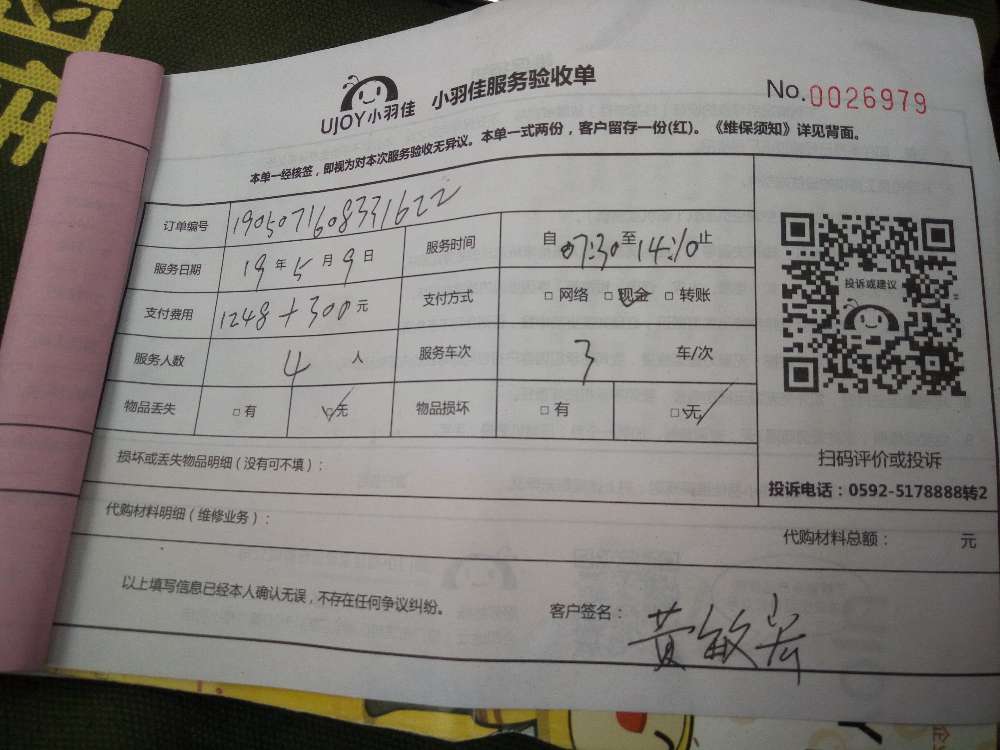 UJOY小羽佳 小羽佳服务验收单 No.0026979
本单一经核签，即视为对本次服务验收无异议。本单一式两份，客户留存一份(红)。《维保须知》详见背面。
订单编号 1905071608331622
服务日期 19年5月9日 服务时间 自07:30至14:10止
支付费用 1248+300元 支付方式 □网络 □现金 □转账
服务人数 4人 服务车次 3 车/次
物品丢失 □有 □无 物品损坏 □有 □无
投诉或建议
扫码评价或投诉
投诉电话：0592-5178888转2
损坏或丢失物品明细（没有可不填）：
代购材料明细（维修业务）：
代购材料总额： 元
以上填写信息已经本人确认无误，不存在任何争议纠纷。 客户签名：黄敏